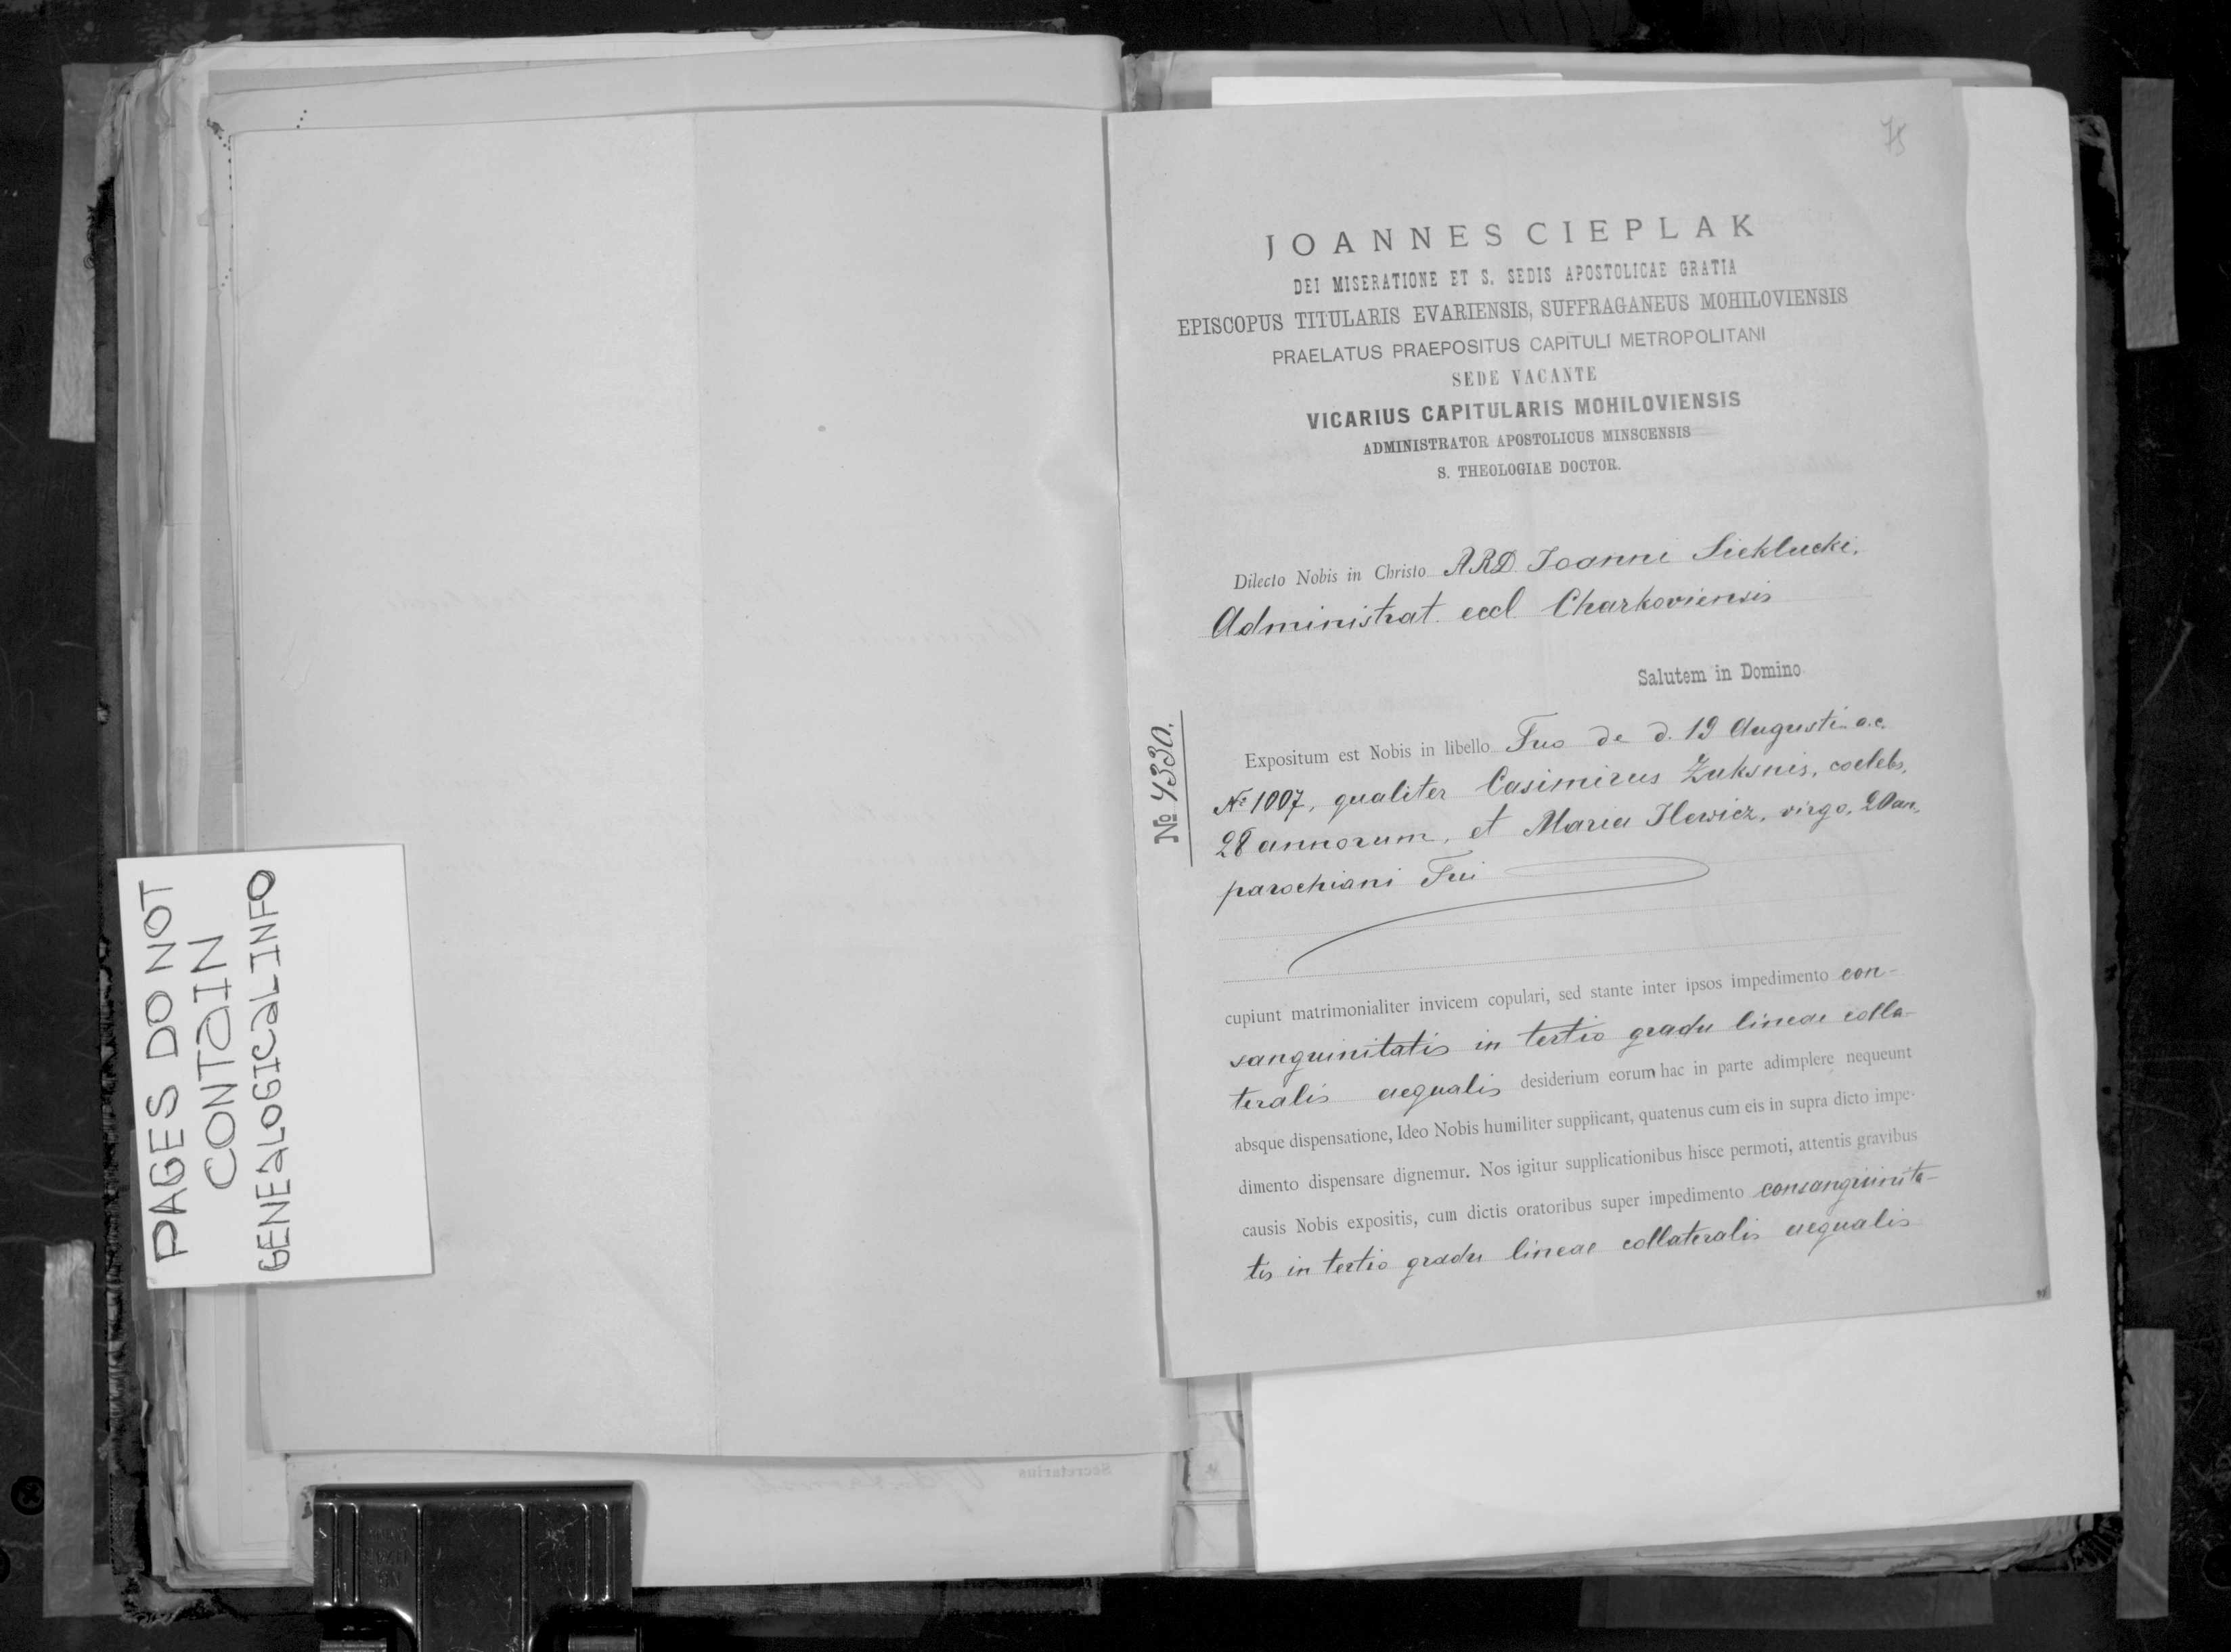 PAGES DO NOT
CONTAIN
GENEALOGICAL INFO
Secretarius
75
JOANNES CIEPLAK
DEI MISERATIONE ET S. SEDIS APOSTOLICAE GRATIA
EPISCOPUS TITULARIS EVARIENSIS, SUFFRAGANEUS MOHILOVIENSIS
PRAELATUS PRAEPOSITUS CAPITULI METROPOLITANI
SEDE VACANTE
VICARIUS CAPITULARIS MOHILOVIENSIS
ADMINISTRATOR APOSTOLICUS MINSCENSIS
S. THEOLOGIAE DOCTOR.
Dilecto Nobis in Christo ARD Joanni Sieklucki,
Administrat. eccl. Charkoviensis
Salutem in Domino
№ 4330.
Expositum est Nobis in libello Tuo de d. 19 Augusti a.c.
№ 1007, qualiter Casimirus Żuksnis, coelebs,
28 annorum, et Maria Ilewicz, virgo, 20 an,
parochiani Tui
cupiunt matrimonialiter invicem copulari, sed stante inter ipsos impedimento con-
sanguinitatis in tertio gradu lineae colla-
teralis aequalis desiderium eorum hac in parte adimplere nequeunt
absque dispensatione, Ideo Nobis humiliter supplicant, quatenus cum eis in supra dicto impe-
dimento dispensare dignemur. Nos igitur supplicationibus hisce permoti, attentis gravibus
causis Nobis expositis, cum dictis oratoribus super impedimento consanguinita-
tis in tertio gradu lineae collateralis aequalis